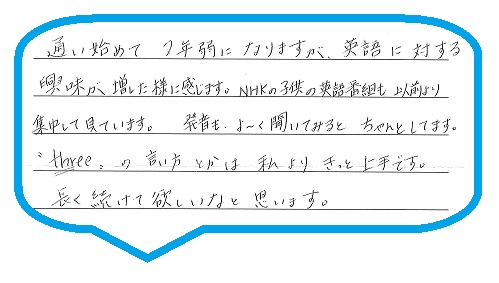 通い始めて 2年弱に なりますが、英語に 対する
興味が 増した様に感じます。NHKの子供の英語番組も 以前より
集中して見ています。 発音も、よ〜く聞いてみると ちゃんとしてます。
"three"の 言い方 とかは 私より きっと上手です。
長く 続けて 欲しいなと 思います。